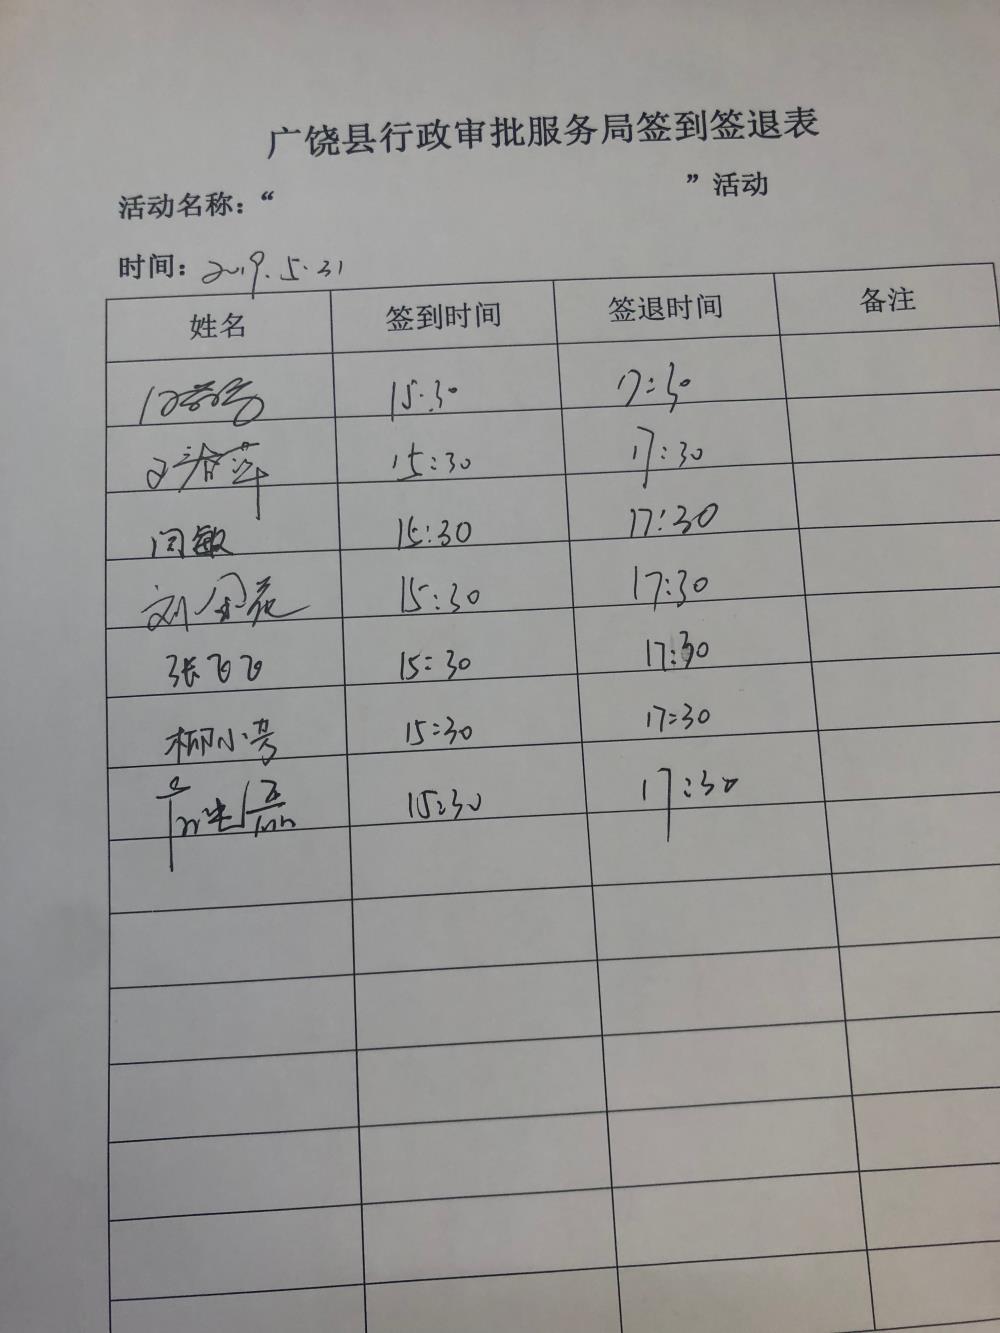 广饶县行政审批服务局签到签退表
活动名称：“ ”活动
时间：2019.5.31
姓名 签到时间 签退时间 备注
15:30 17:30
15:30 17:30
闫敏 15:30 17:30
刘金花 15:30 17:30
张飞飞 15:30 17:30
柳小芳 15:30 17:30
15:30 17:30